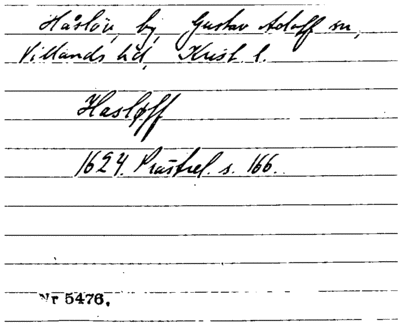 Håslöv, by, Gustav Adolf sn,
Villands hd, Krist l.
Hasløff
1624. Prästrel. s. 166.
Nr 5476.